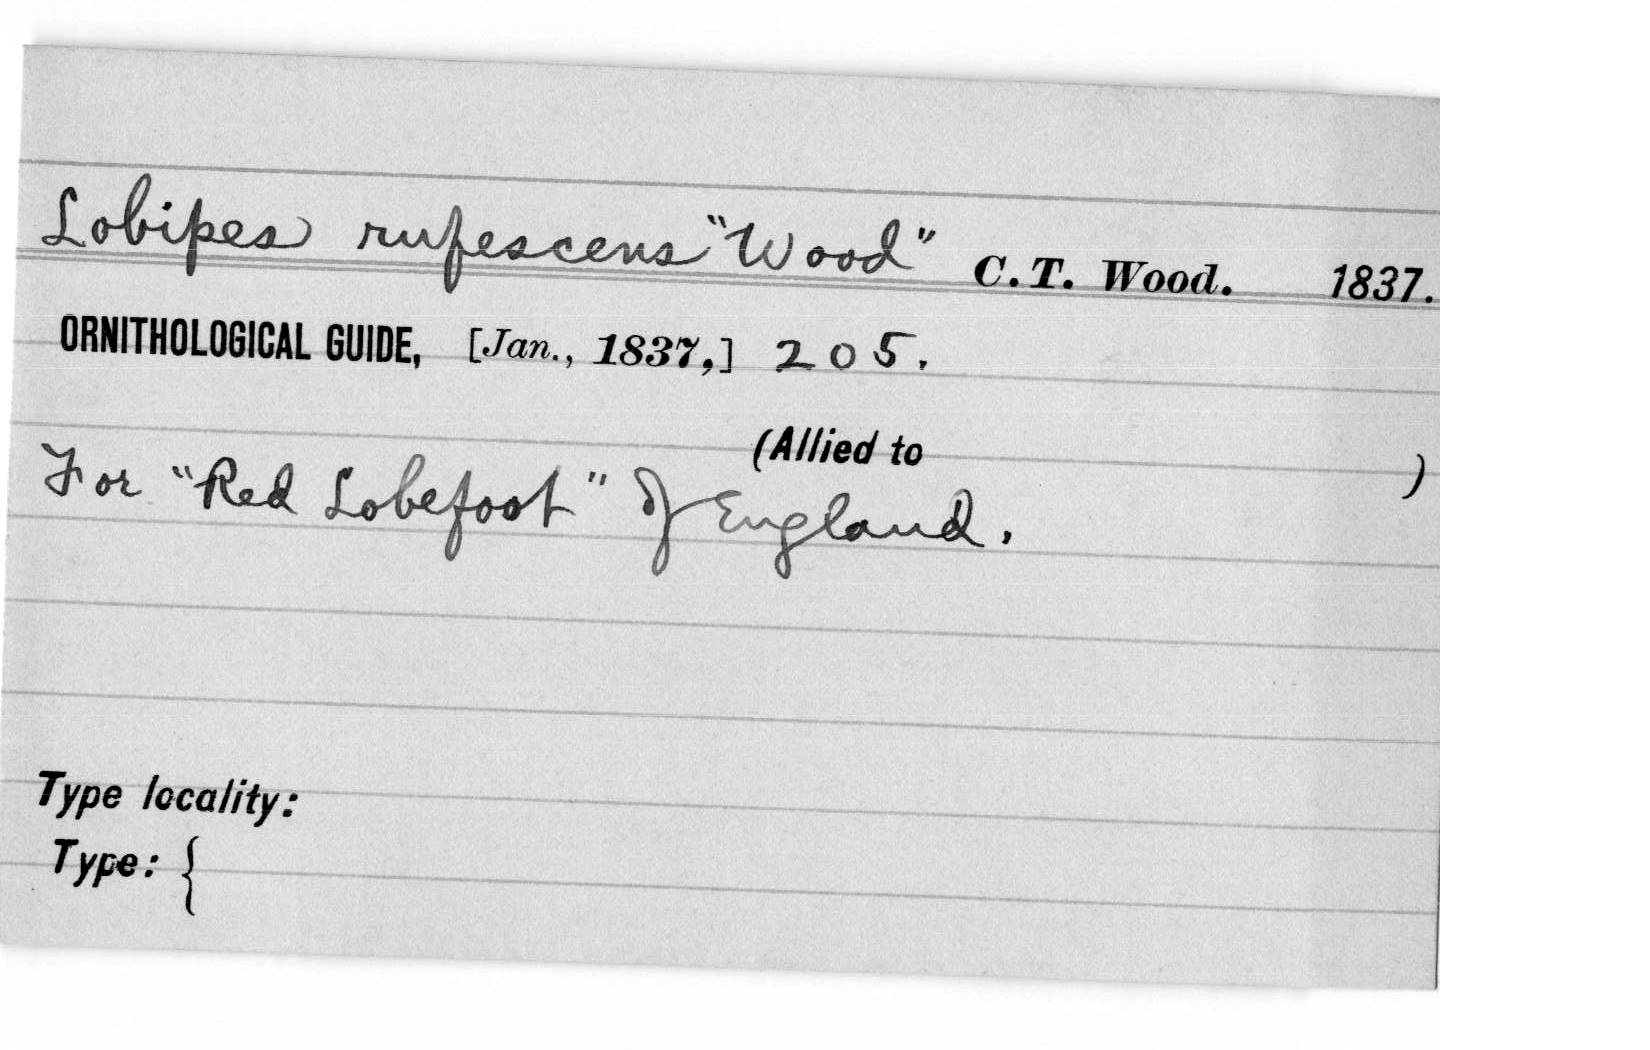 Lobipes rufescens "Wood" C.T. Wood. 1837.
ORNITHOLOGICAL GUIDE, [Jan., 1837,] 205.
(Allied to )
For "Red Lobefoot" of England.
Type locality:
Type: {